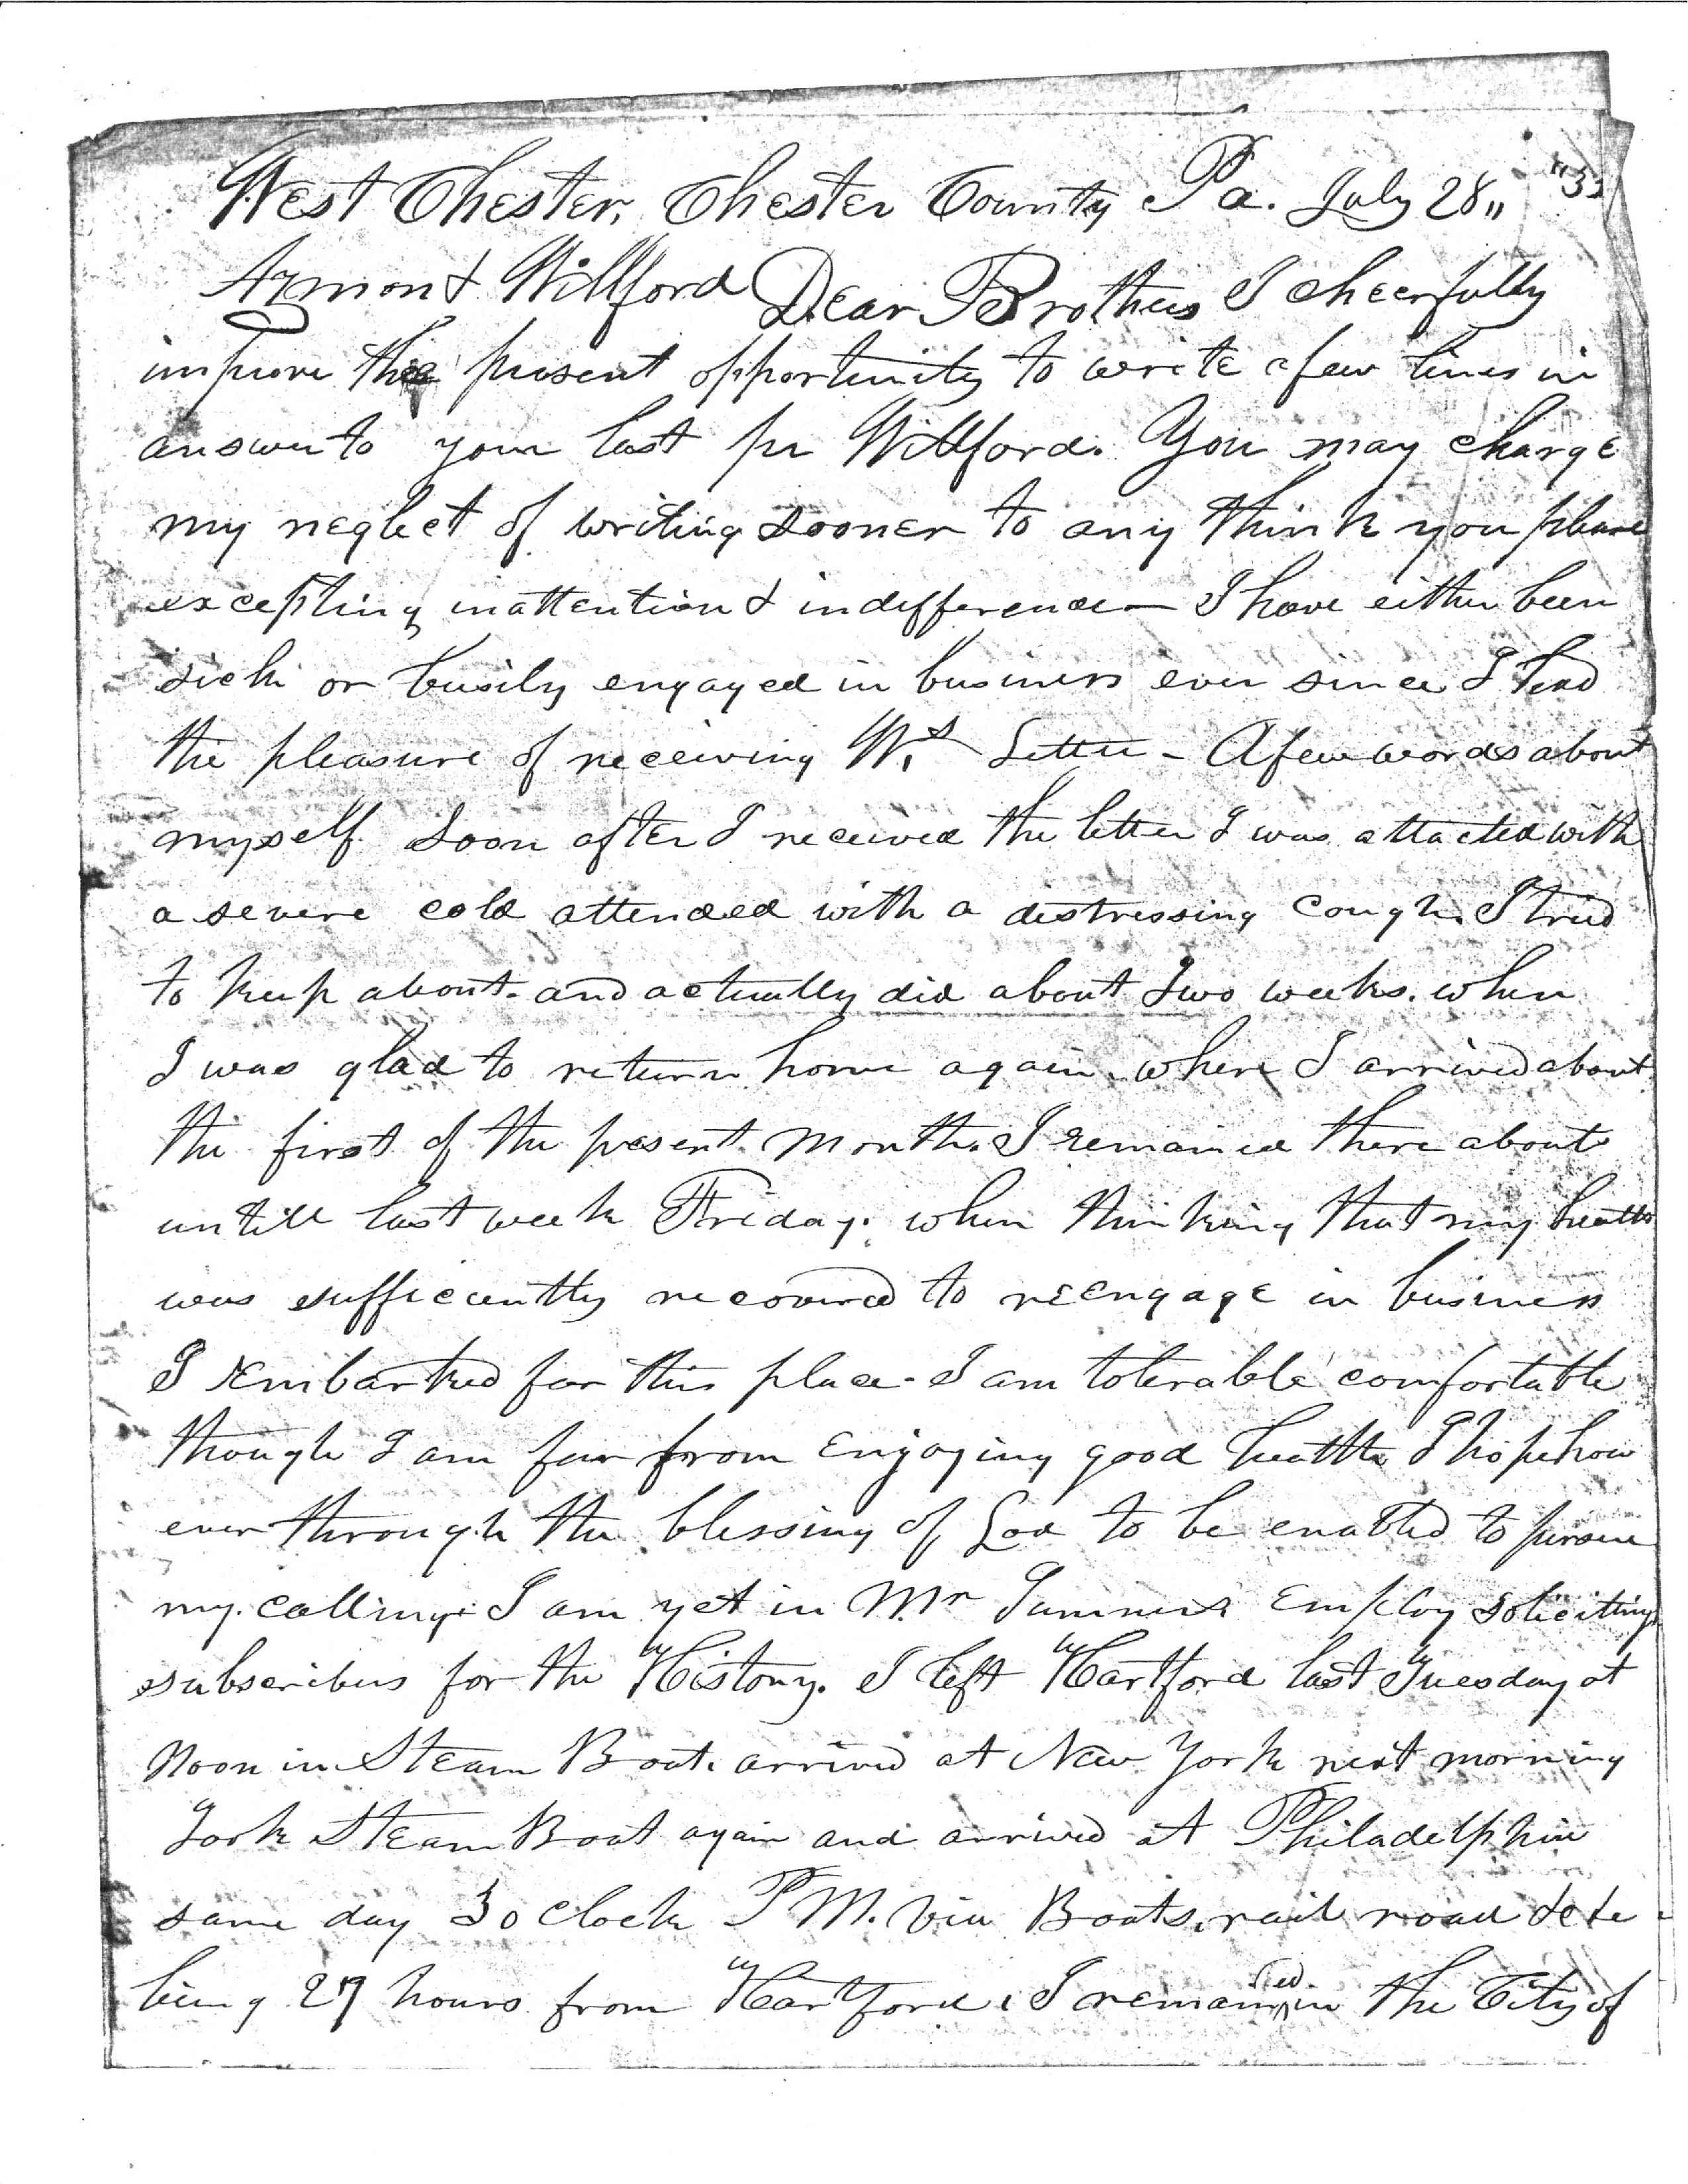 West Chester, Chester County Pa. July 28,, "33
Azmon & Willford Dear Brothers I cheerfully
improve the present opportunity to write a few lines in
answer to your last pr Willford. You may charge
my neglect of writing sooner to any think you please
excepting inattention & indifference — I have either been
sick or busily engaged in business ever since I had
the pleasure of receiving W,s Letter - A few words about
myself. Soon after I received the letter I was attacted with
a severe cold attended with a distressing cough. I tried
to keep about. and actually did about Two weeks. when
I was glad to return home again. where I arrived about
the first of the present month. I remained there about
untill last week Friday. when thinking that my health
was sufficiently recovered to reengage in business
I embarked for this place - I am tolerable comfortable
though I am far from enjoying good health I hope how
ever through the blessing of God to be enabled to pursue
my calling. I am yet in Mr employ soliciting
subscribers for the History. I left Hartford last Tuesday at
Noon in Steam Boat. arrived at New York next morning
Took Steam Boat again and arrived at Philadelphia
same day 3 o Clock P M. via Boats, rail road &c &c
being 27 hours from Hartford. I remained in the City of